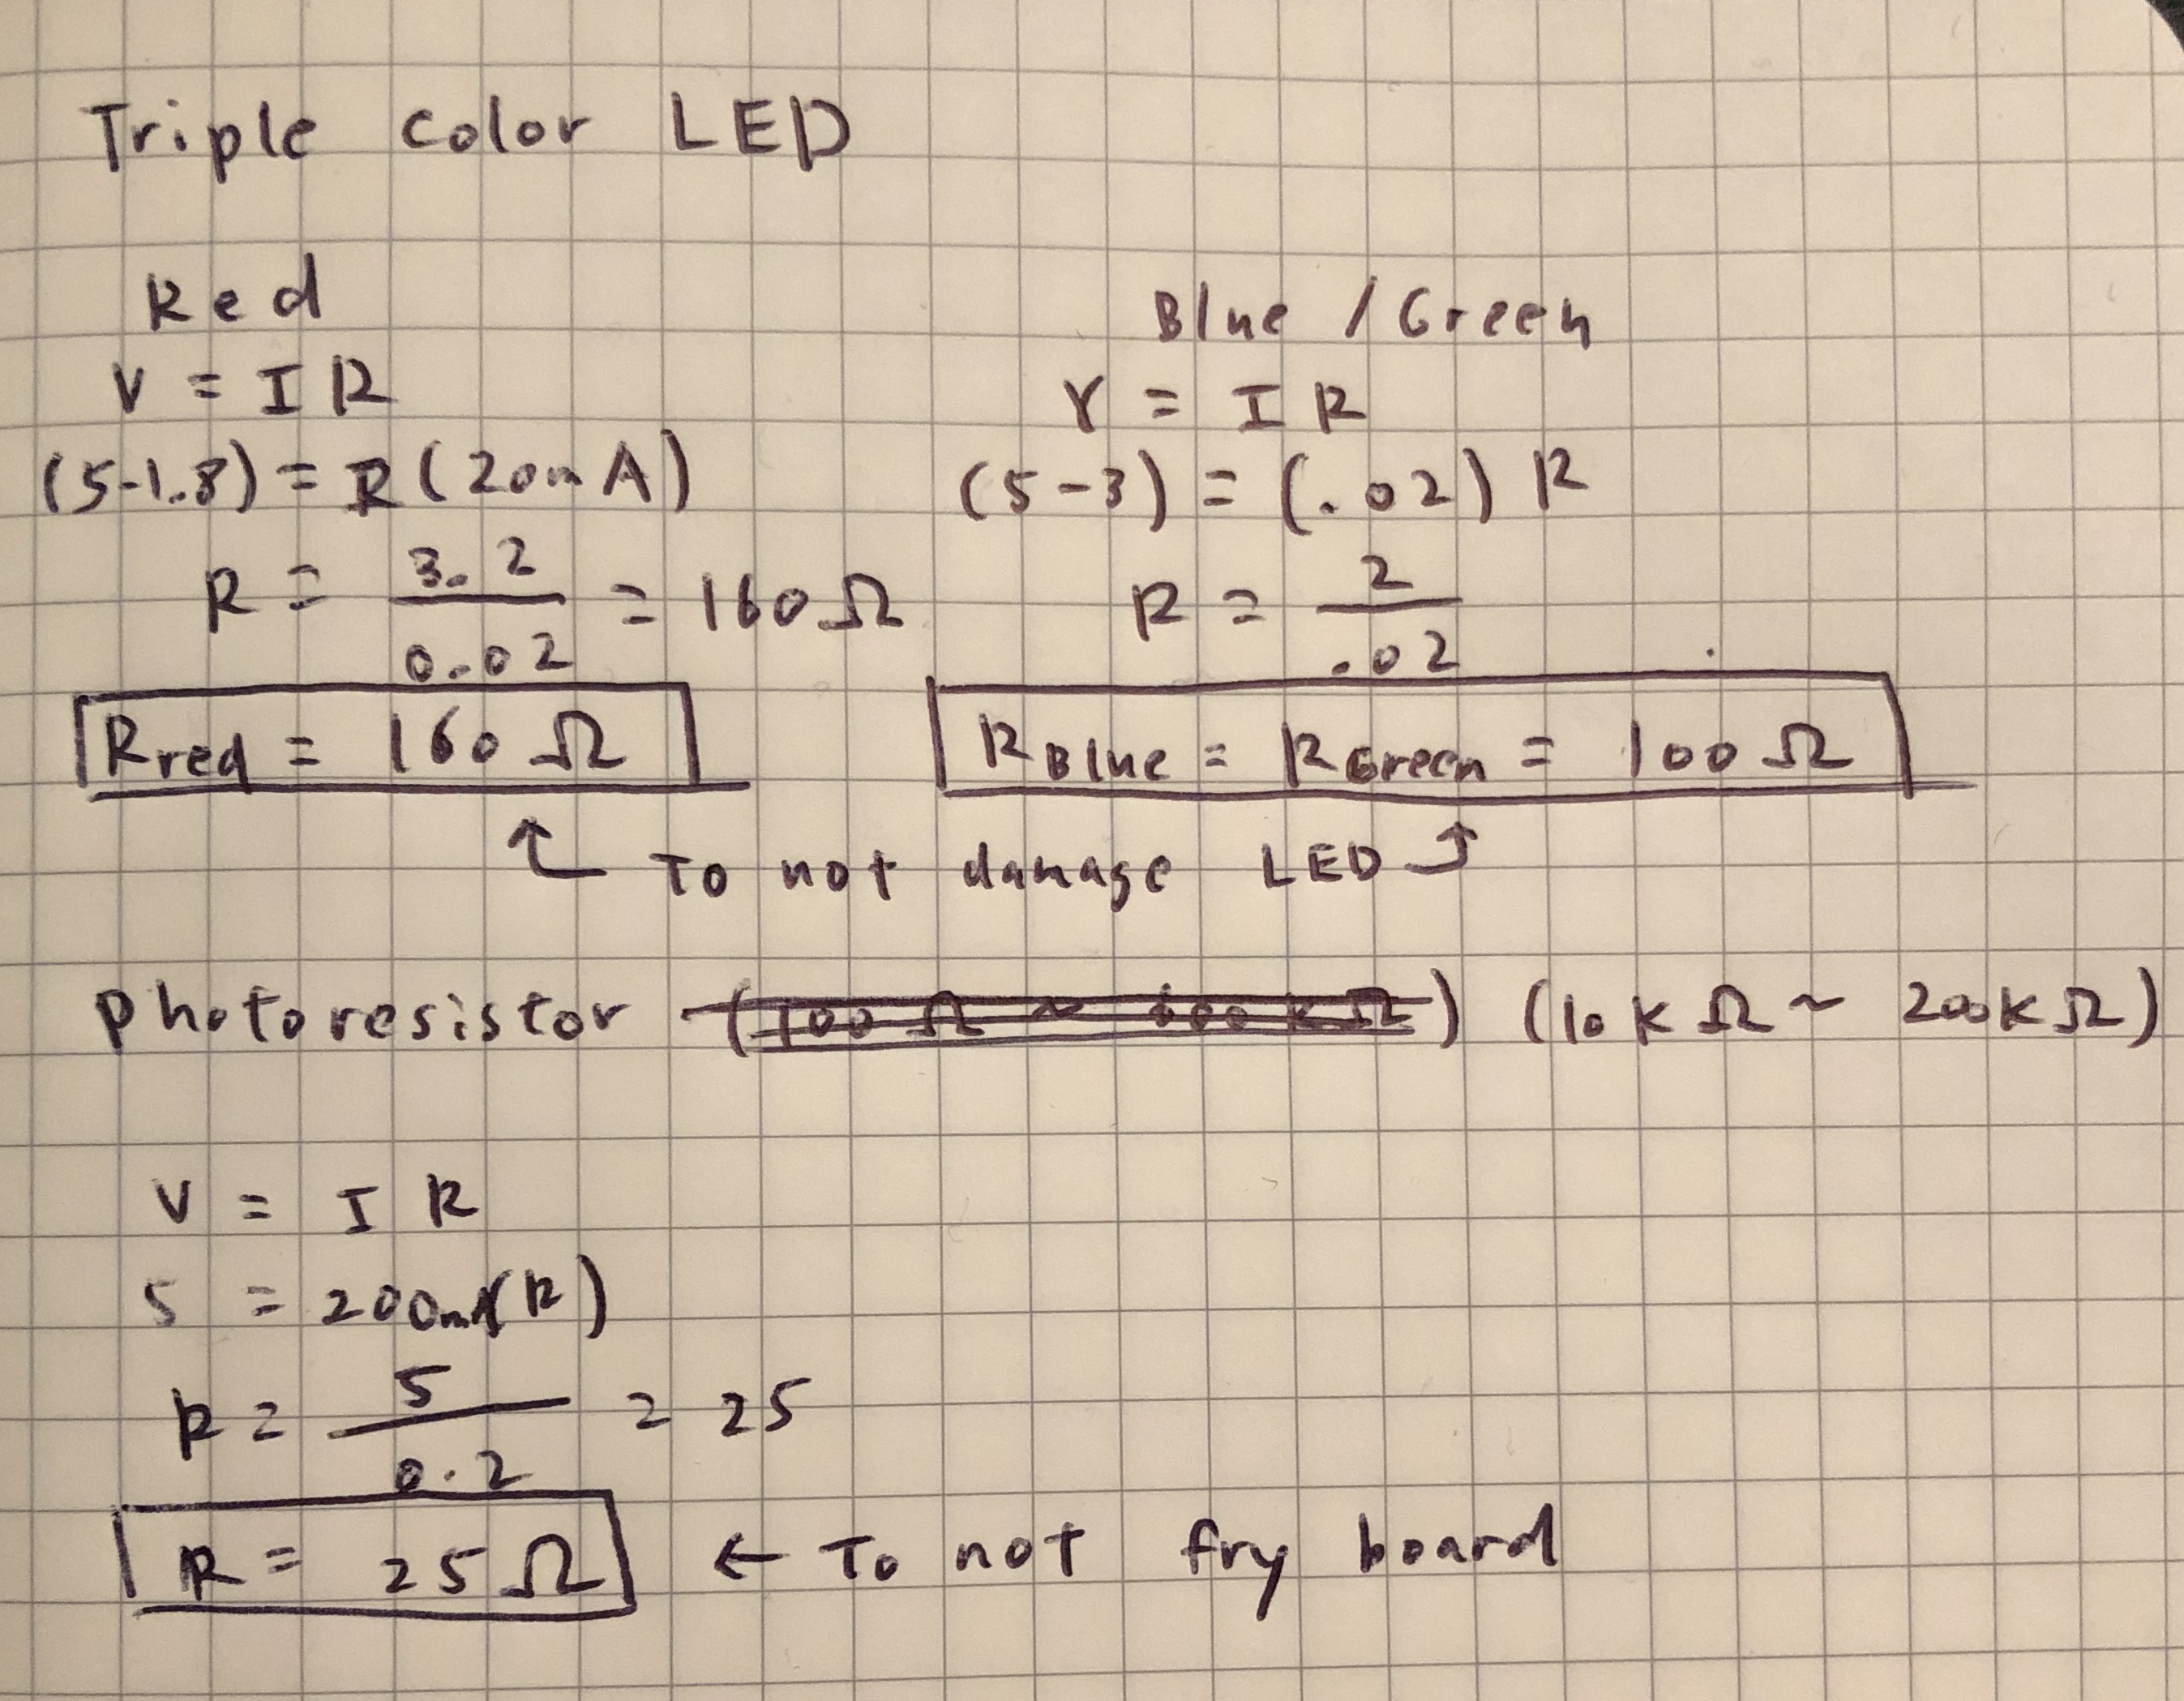 Triple Color LED
Red
V = I R
(5-1.8) = R (20mA)
R = 3.2 / 0.02 = 160 Ω
Rred = 160 Ω
Blue / Green
V = I R
(5-3) = (.02) R
R = 2 / .02
RBlue = RGreen = 100 Ω
↑ To not damage LED ↑
Photoresistor (100 Ω ~ ) (10K Ω ~ 200K Ω)
V = I R
5 = 200mA(R)
R = 5 / 0.2 = 25
R = 25 Ω ← To not fry board